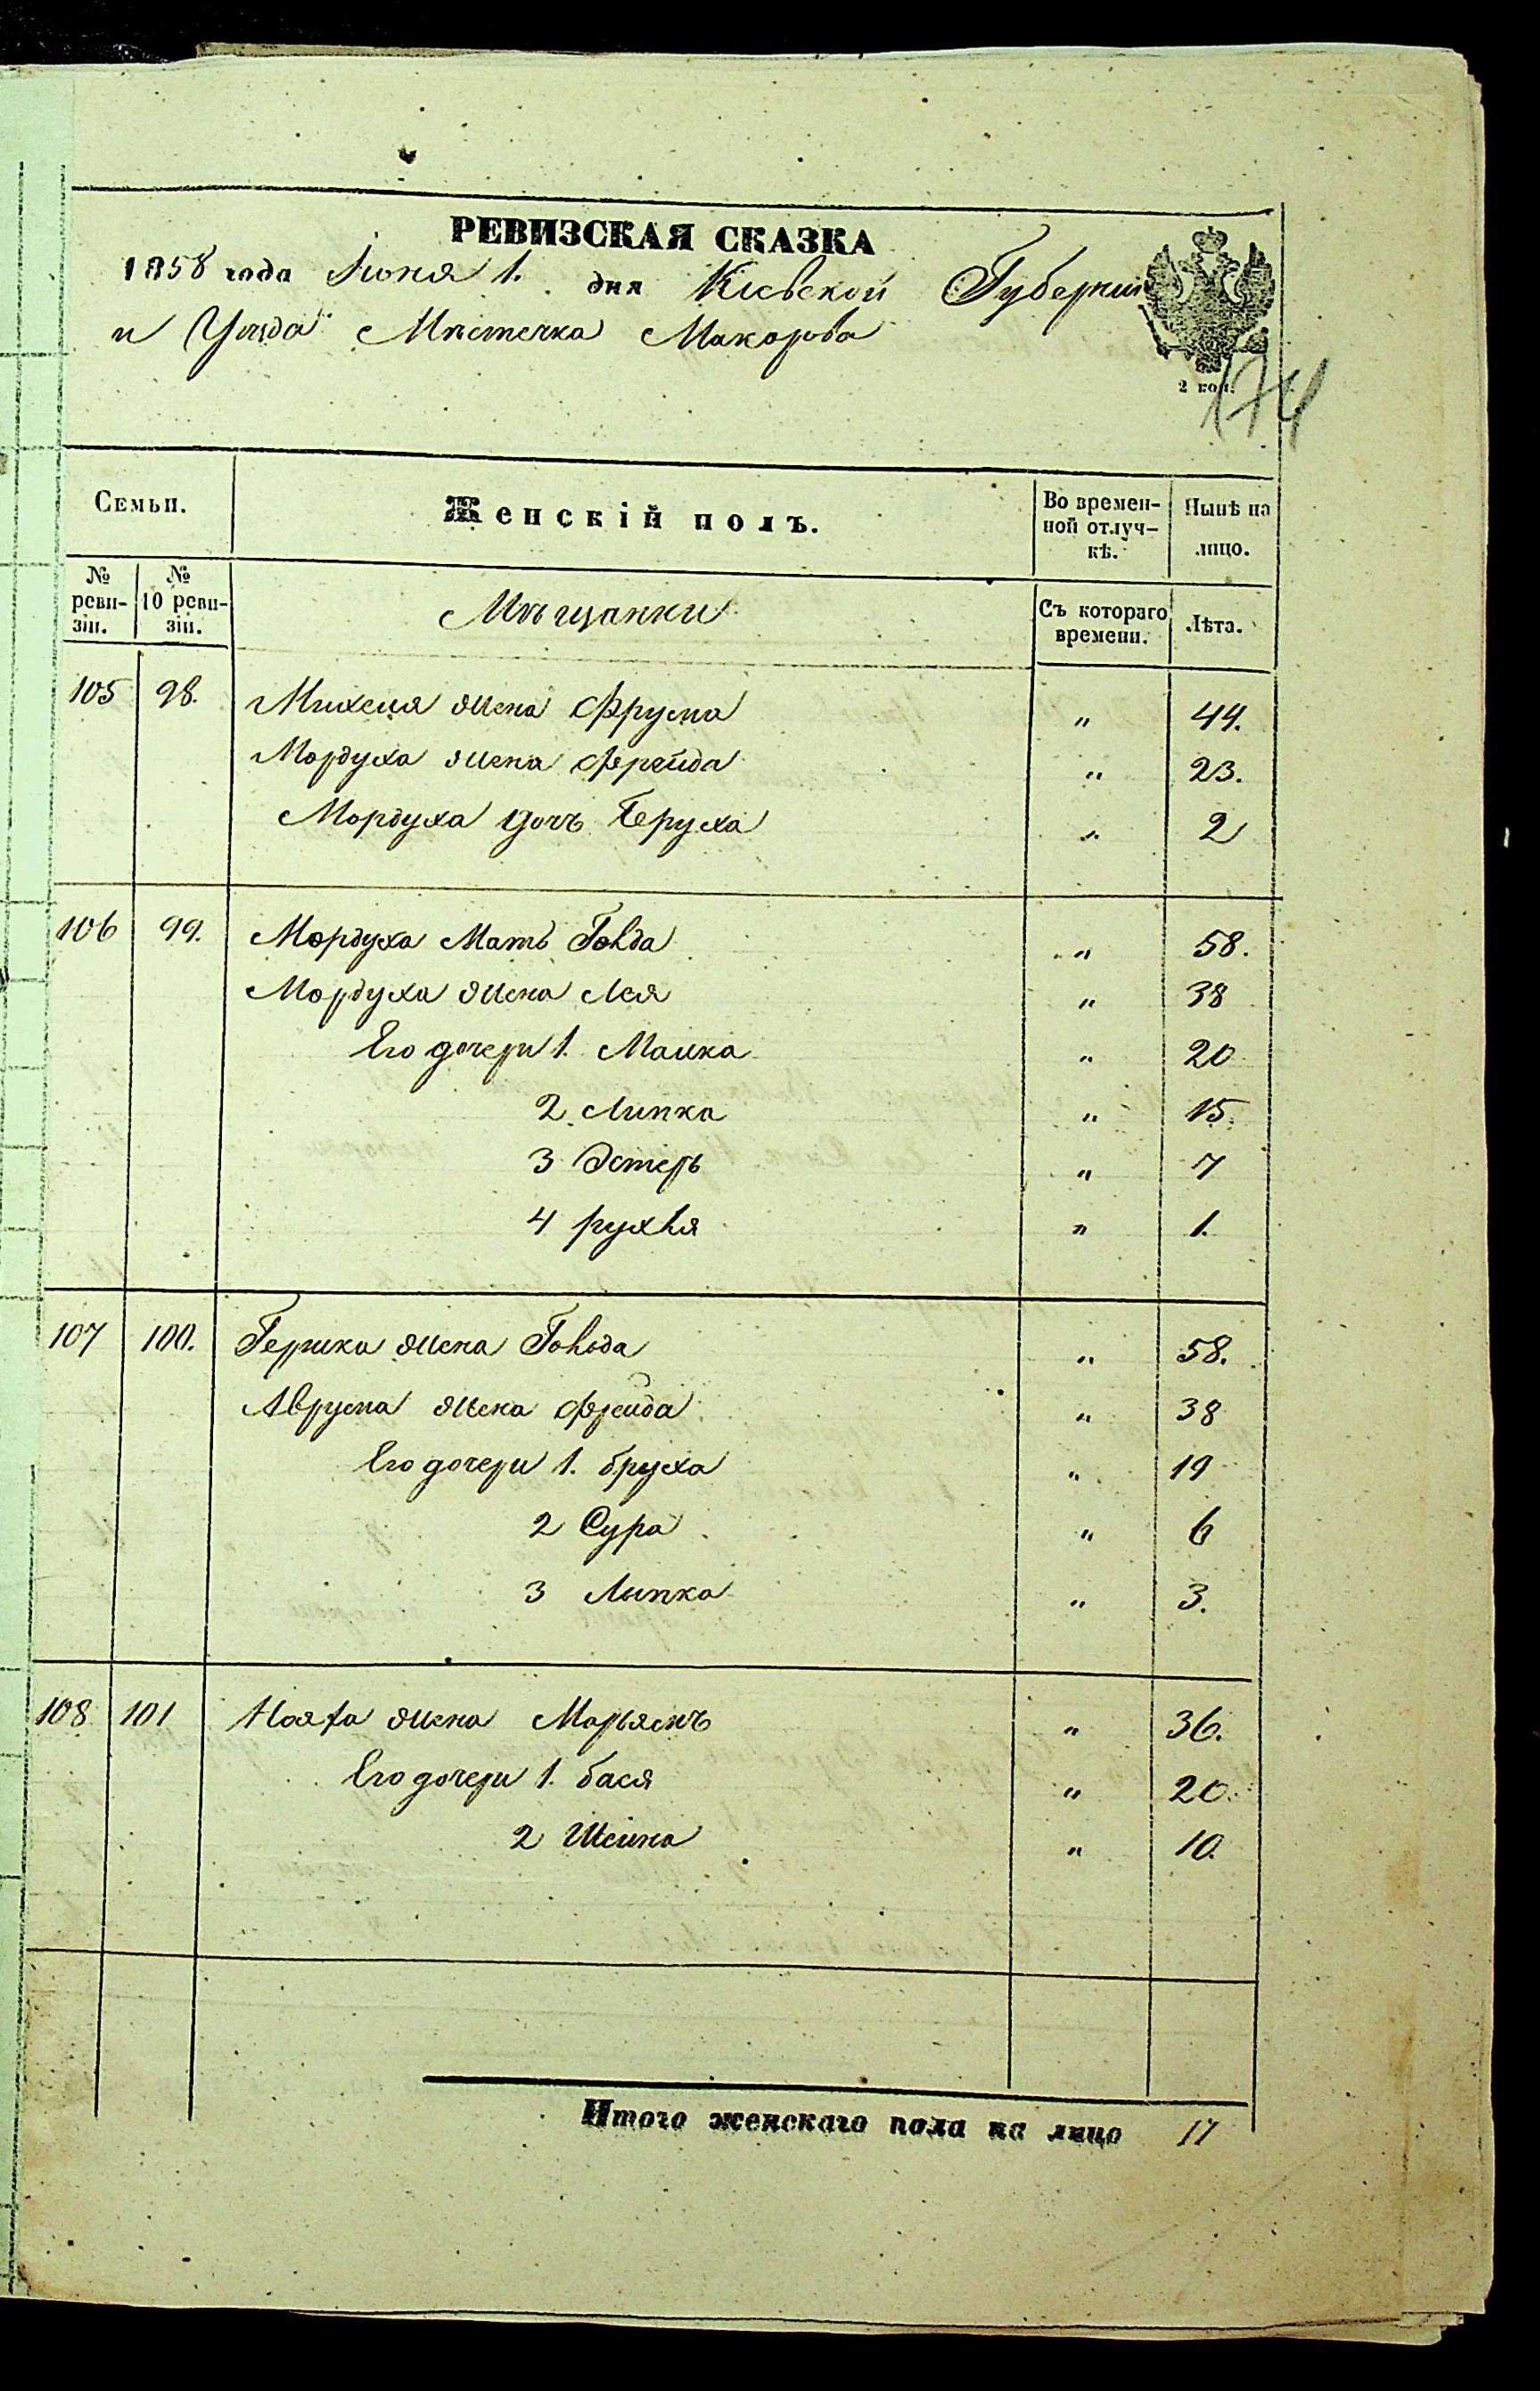 РЕВИЗСКАЯ СКАЗКА
1858 года Іюня 1. дня Кіевской Губерніи
и Уѣзда Мѣстечка Макарова
2 коп.
174
Семьи.
Женскій полъ.
Во времен-
ной отлуч-
кѣ.
Нынѣ на
лицо.
№
реви-
зіи.
№
10 реви-
зіи.
Мѣщанки
Съ котораго
времени.
Лѣта.
105 98. Михеля жена Фрума " 44.
Мордуха жена Фрейда " 23.
Мордуха дочь Беруха " 2
106 99. Мордуха Мать Голда " 58.
Мордуха жена Лея " 38
Его дочери 1. Малка " 20
2. Липка " 15.
3 Эстеръ " 7
4 рухля " 1.
107 100. Гершка жена Гольда " 58.
Аврума жена Фрейда " 38
Его дочери 1. бруха " 19
2 Сура " 6
3 Липка " 3.
108 101 жена Марьямъ " 36.
Его дочери 1. бася " 20.
2 Шейна " 10.
Итого женскаго пола на лицо 17